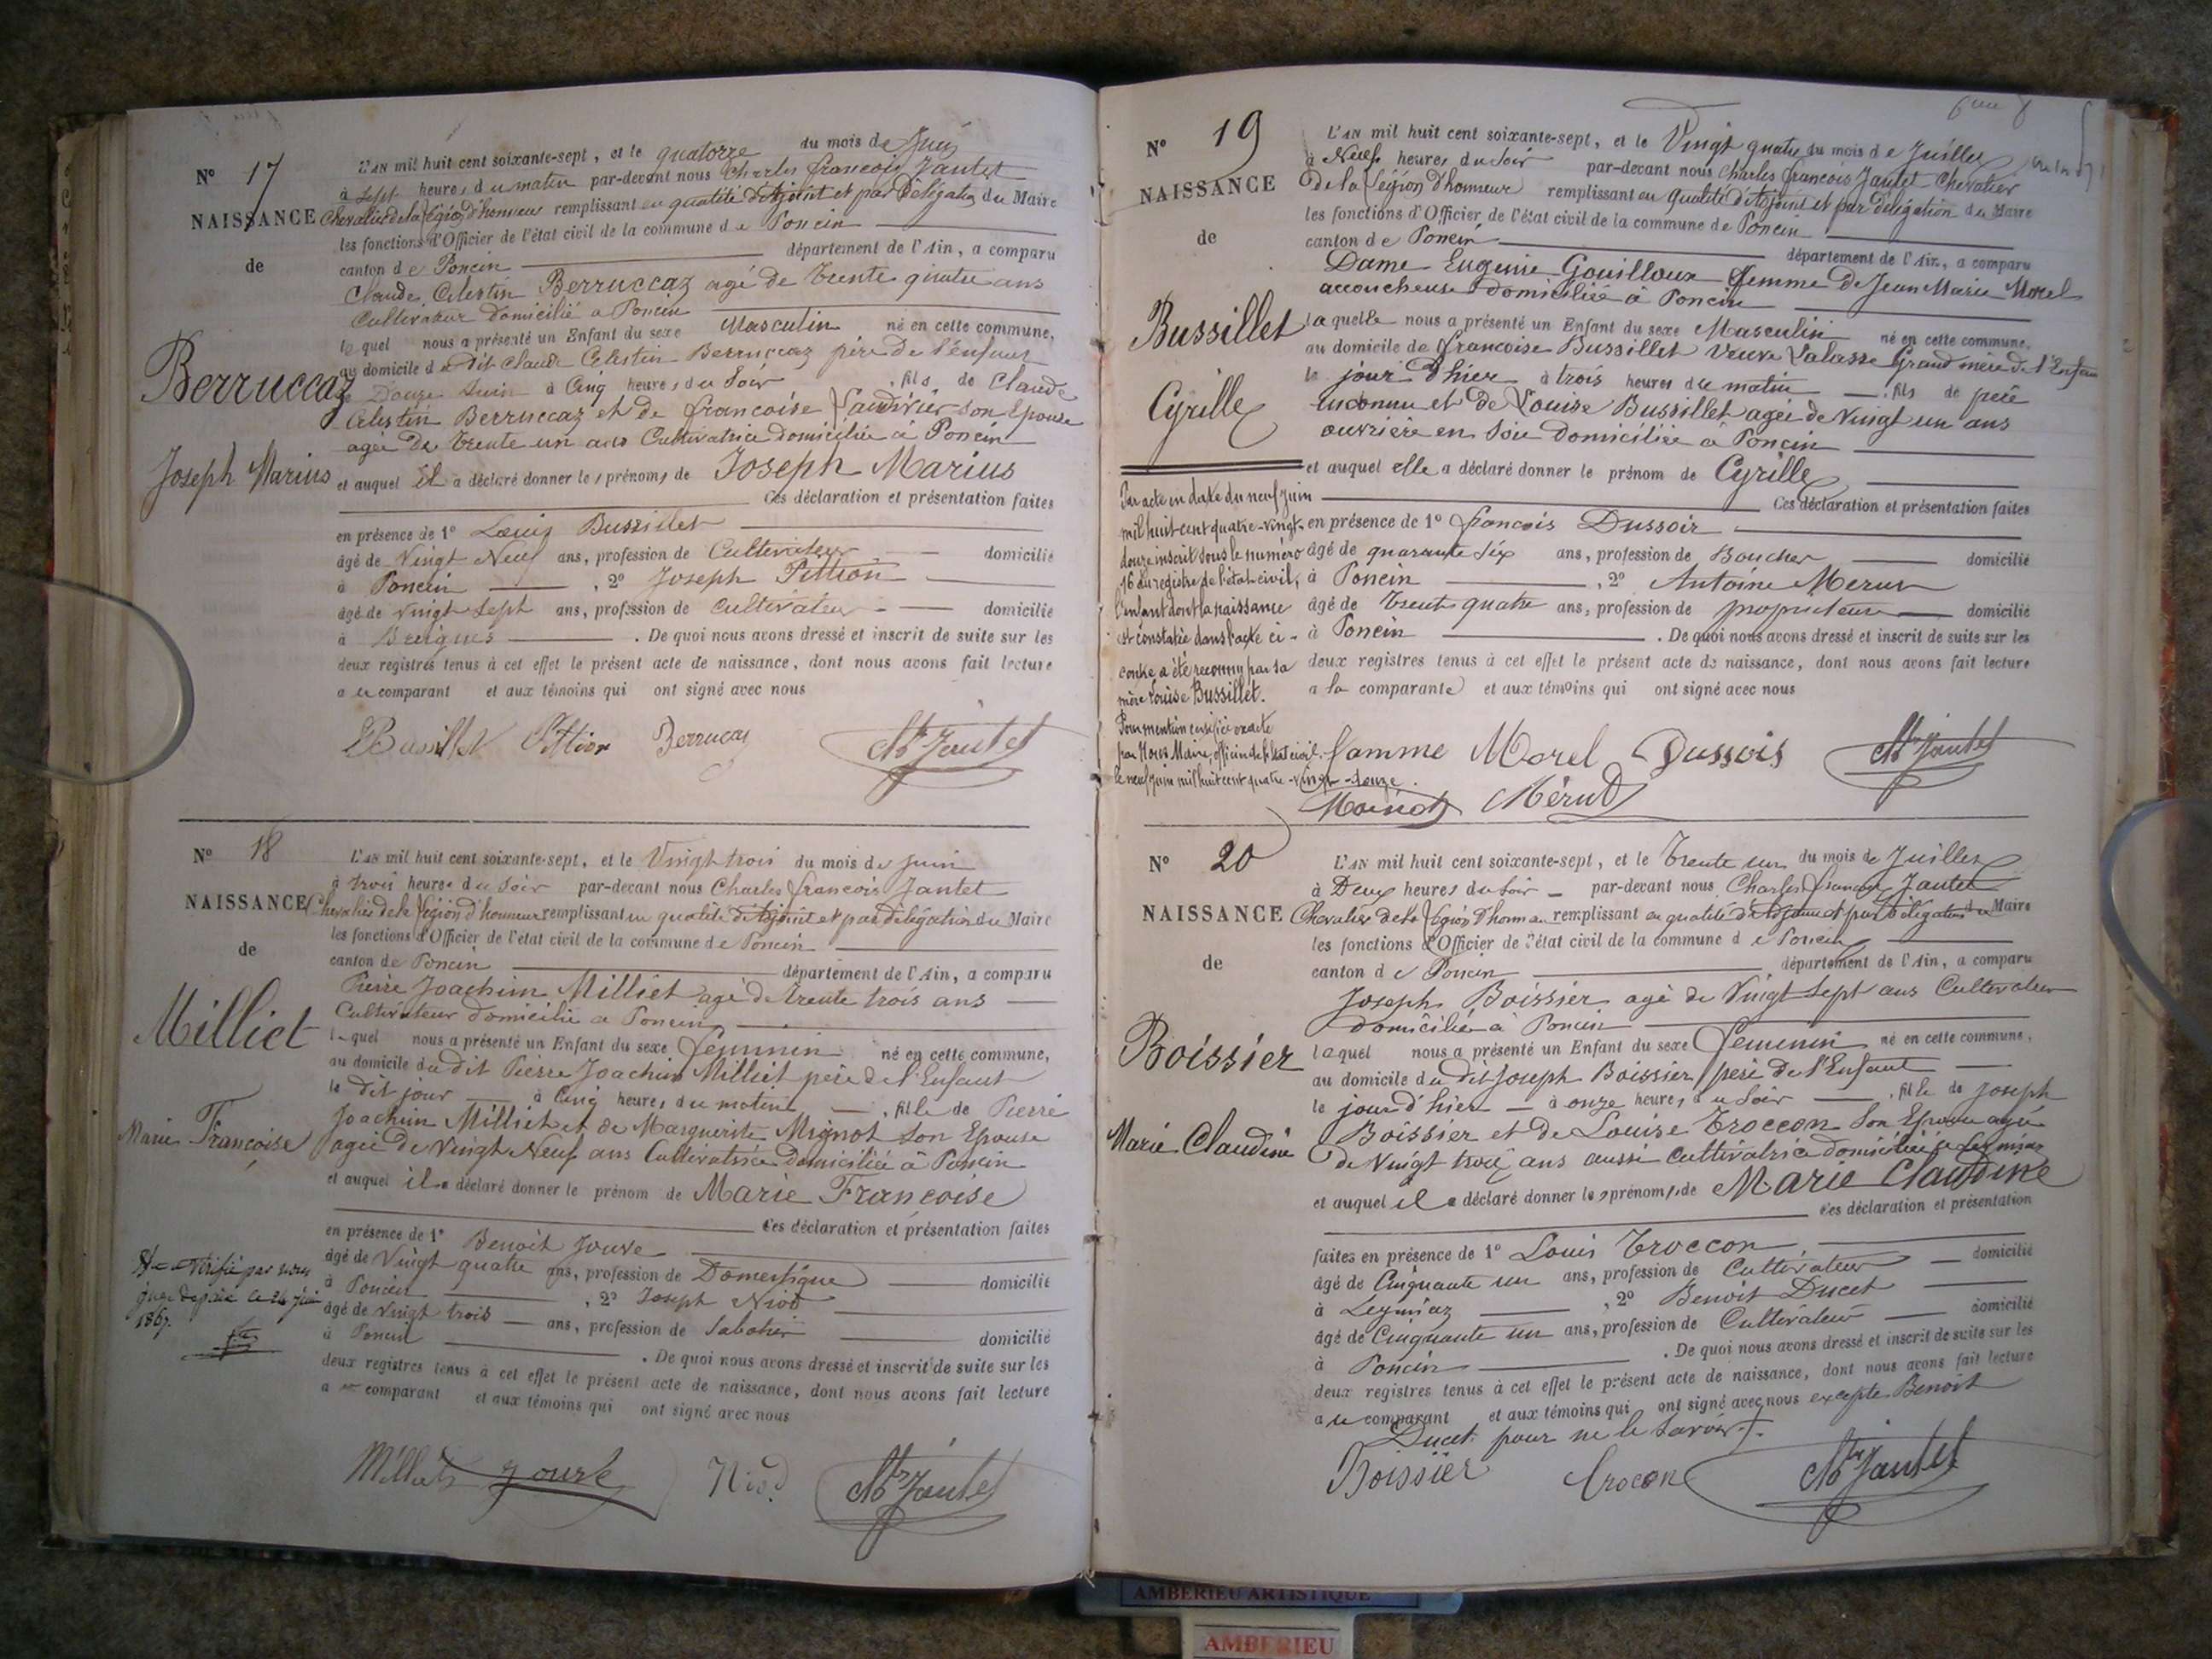 N° 17
NAISSANCE
de
Berruccaz
Joseph Marius
L'AN mil huit cent soixante-sept, et le quatorze du mois de Juin
à sept heures du matin par-devant nous Charles françois Jantet
Chevalier de la légion d'honneur remplissant en qualité d'Adjoint et par délégation du Maire
les fonctions d'Officier de l'état civil de la commune de Poncin
canton de Poncin département de l'Ain, a comparu
Claude Célestin Berruccaz agé de trente quatre ans
Cultivateur domicilié a Poncin
lequel nous a présenté un Enfant du sexe Masculin né en cette commune,
au domicile du dit Claude Celestin Berruccaz père de l'enfant
le Douze Juin à Cinq heures du Soir, fils de Claude
Célestin Berruccaz et de françoise son Epouse
agée de trente un ans Cultivatrice domiciliée à Poncin
et auquel il a déclaré donner les prénoms de Joseph Marius
Ces déclaration et présentation faites
en présence de 1° Louis Bussillet
âgé de Vingt Neuf ans, profession de Cultivateur domicilié
à Poncin, 2° Joseph Pittion
âgé de vingt sept ans, profession de cultivateur domicilié
à. De quoi nous avons dressé et inscrit de suite sur les
deux registres tenus à cet effet le présent acte de naissance, dont nous avons fait lecture
a u comparant et aux témoins qui ont signé avec nous
LBussillet Pittion Berrucaz Ch Jantet
N° 18
NAISSANCE
de
Milliet
Marie Françoise
L'AN mil huit cent soixante-sept, et le Vingt trois du mois de Juin
à trois heures du Soir par-devant nous Charles françois Jantet
Chevalier de la légion d'honneur remplissant en qualité d'Adjoint et par délégation du Maire
les fonctions d'Officier de l'état civil de la commune de Poncin
canton de Poncin département de l'Ain, a comparu
Pierre Joachim Milliet agé de trente trois ans
Cultivateur domicilié a Poncin
lequel nous a présenté un Enfant du sexe féminin né en cette commune,
au domicile du dit Pierre Joachim Milliet père de l'Enfant
le dit jour à Cinq heures du matin, fille de Pierre
Joachim Milliet et de Marguerite Mignot Son Epouse
agée de Vingt Neuf ans Cultivatrice domiciliée à Poncin
et auquel il a déclaré donner le prénom de Marie Françoise
Ces déclaration et présentation faites
en présence de 1° Benoit Jouve
âgé de Vingt quatre ans, profession de Domestique domicilié
à Poncin, 2° Joseph Niod
âgé de vingt trois ans, profession de Sabotier domicilié
à Poncin. De quoi nous avons dressé et inscrit de suite sur les
deux registres tenus à cet effet le présent acte de naissance, dont nous avons fait lecture
a u comparant et aux témoins qui ont signé avec nous
Vérifié par nous
juge de paix le 24 Juin
1867.
Milliet Jouve Niod Ch Jantet
N° 19
NAISSANCE
de
Bussillet
Cyrille
L'AN mil huit cent soixante-sept, et le Vingt quatre du mois de Juillet
à Neuf heures du Soir par-devant nous Charles françois Jantet Chevalier
De la légion d'honneur remplissant en qualité d'Adjoint et par délégation du Maire
les fonctions d'Officier de l'état civil de la commune de Poncin
canton de Poncin département de l'Ain, a comparu
Dame Eugenie Gouilloux femme De Jean Marie Morel
accoucheuse domiciliée à Poncin
laquelle nous a présenté un Enfant du sexe Masculin né en cette commune,
au domicile de françoise Bussillet Veuve Grand mère de l'Enfant
le jour d'hier à trois heures du matin, fils de père
inconnu et de Louise Bussillet agée de Vingt un ans
ouvrière en Soie domiciliée à Poncin
et auquel elle a déclaré donner le prénom de Cyrille
Ces déclaration et présentation faites
en présence de 1° françois Dussoir
âgé de quarante Six ans, profession de Boucher domicilié
à Poncin, 2° Antoine Merut
âgé de trente quatre ans, profession de propriétaire domicilié
à Poncin. De quoi nous avons dressé et inscrit de suite sur les
deux registres tenus à cet effet le présent acte de naissance, dont nous avons fait lecture
a la comparante et aux témoins qui ont signé avec nous
Par acte en date du neuf juin
mil huit-cent quatre-vingt-
douze inscrit sous le numéro
16 du registre de l'état-civil,
l'enfant dont la naissance
est constatée dans l'acte ci-
contre a été reconnu par sa
mère Louise Bussillet.
Pour mention certifiée exacte
par Nous Maire, officier de l'état civil
le neuf juin mil huit cent quatre-vingt-douze.
famme Morel Dussois Ch Jantet
Mérut
N° 20
NAISSANCE
de
Boissier
Marie Claudine
L'AN mil huit cent soixante-sept, et le trente un du mois de Juillet
à Deux heures du Soir par-devant nous Charles françois Jantet
Chevalier de la légion d'honneur remplissant en qualité d'Adjoint et par délégation du Maire
les fonctions d'Officier de l'état civil de la commune de Poncin
canton de Poncin département de l'Ain, a comparu
Joseph Boissier agé de Vingt Sept ans Cultivateur
domicilié à Poncin
laquel nous a présenté un Enfant du sexe féminin né en cette commune,
au domicile du dit Joseph Boissier père de l'Enfant
le jour d'hier à onze heures du Soir, fille de Joseph
Boissier et de Louise Troccon Son Epouse agée
de Vingt trois ans aussi cultivatrice domiciliée a Leymiaz
et auquel il a déclaré donner les prénoms de Marie Claudine
Ces déclaration et présentation
faites en présence de 1° Louis Troccon
âgé de Cinquante un ans, profession de Cultivateur domicilié
à Leymiaz, 2° Benoit Ducet
âgé de Cinquante un ans, profession de Cultivateur domicilié
à Poncin. De quoi nous avons dressé et inscrit de suite sur les
deux registres tenus à cet effet le présent acte de naissance, dont nous avons fait lecture
a u comparant et aux témoins qui ont signé avec nous excepté Benoit
Ducet pour ne le Savoir.
Boissier Trocon Ch Jantet
AMBERIEU ARTISTIQUE
AMBERIEU